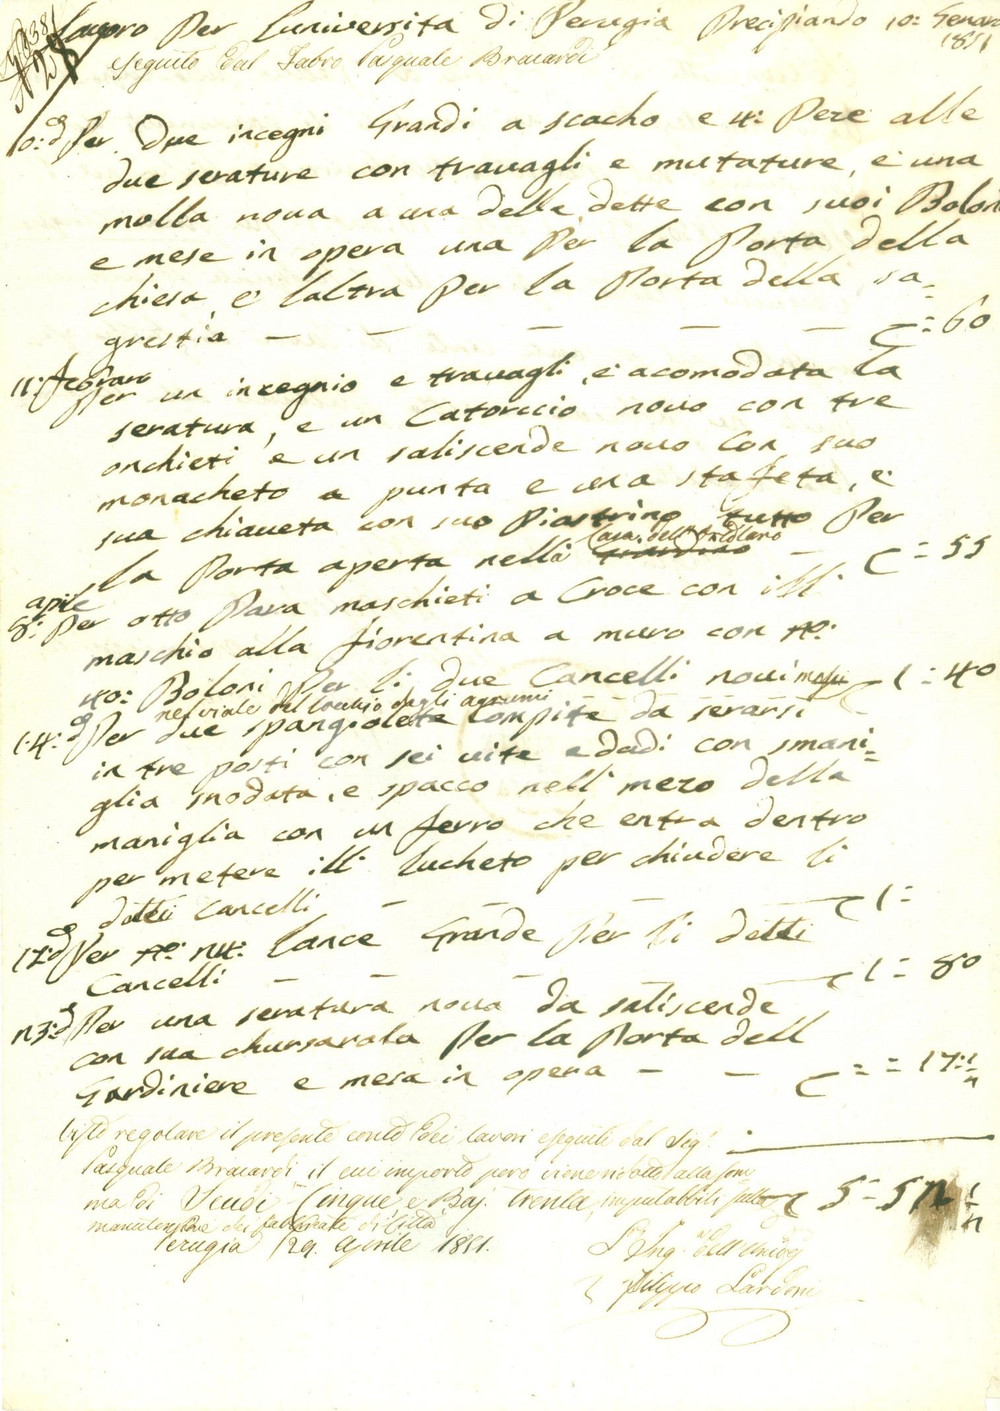 N 28
Lavoro Per Luniversita di Perugia Precipiando 10: Genaro
1851
eseguito dal Fabro Pasquale Bracardi
10: d Per Due incegni Grandi a scacho e 4: Peze alle
due serature con travagli e mutature, e una
molla nova a una delle dette con suoi Boloni
e mese in opera una Per la Porta della
chiesa e laltra Per la Porta della sa=
grestia — — — — — = 60
11: Febraro
Per un incegnio e travagli, e acomodata la
seratura, e un Catorccio novo con tre
onchieti e un saliscende novo Con suo
monacheto a punta e una stafeta, e
sua chiaveta con suo Piastrino tutto Per
la Porta aperta nella Casa dell'Ortolano giardino — = 55
aprile
8: Per otto Para maschieti a Croce con illi
maschio alla fiorentina a muro con No:
40: Boloni Per li due Cancelli novi mesi 1 = 40
nel viale del Cochio degli agrumi
14: d Per due spangiolete compite da serarsi
in tre posti con sei vite e dadi con smani=
glia snodata, e spacco nell mezo della
maniglia con un ferro che entra dentro
per metere illi lucheto per chiudere li
detti Cancelli — — — 1 =
17: d Per No: n4: lance Grande Per li detti
Cancelli — — — 1 = 80
n3: d Per una seratura nova da saliscende
con sua chiusarala Per la Porta dell
Gardiniere e mesa in opera — — = = 17: 1/2
Visto regolare il presente conto dei lavori eseguiti dal Sigr.
Pasquale Bracardi il cui importo però viene ridotto alla som
ma di Scudi Cinque e Baj. trenta, imputabili sulla 5 = 52 1/2
manutenzione dei fabbricati di Città
Perugia 29. Aprile 1851.
L'Ing. dell'Univ.
Filippo Lardoni